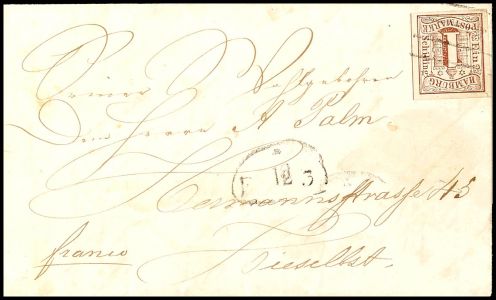 HAMBURG
POSTMARKE
Ein
Schilling
Seiner Wohlgeboren
dem Herrn A Palm.
12 3
Hermannstrasse 45
franco
Hieselbst.